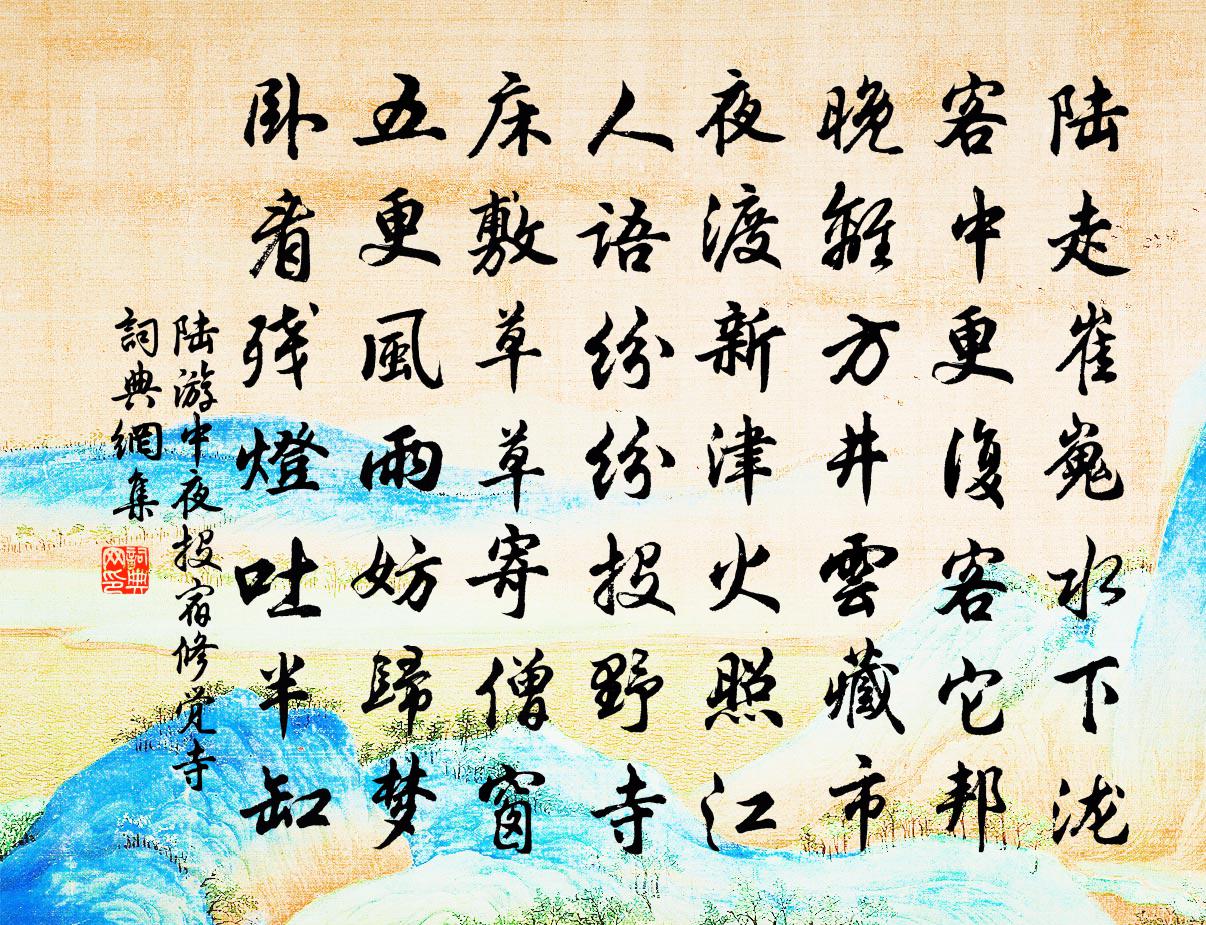 陆走崔嵬水下泷
客中更復客它邦
晚離方井雲藏市
夜渡新津火照江
人语纷纷投野寺
床敷草草寄僧窗
五更風雨妨歸梦
卧看残燈吐半缸
陆游中夜投宿修觉寺
詞典網集
詞典网印